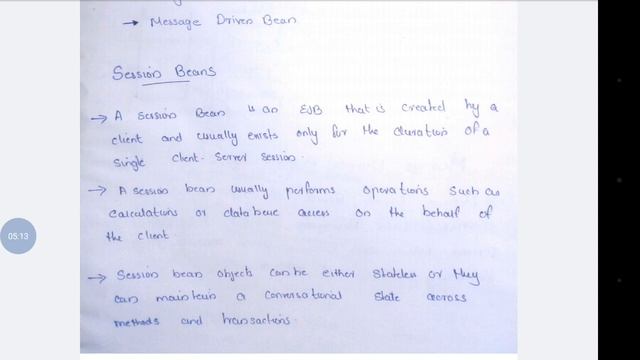 → Message Driven Bean
Session Beans
→ A session Bean is an EJB that is created by a
client and usually exists only for the duration of a
single client-server session.
→ A session bean usually performs operations such as
calculations or database access on the behalf of
the client.
→ Session bean objects can be either stateless or they
can maintain a conversational state across
methods and transactions.
05:13